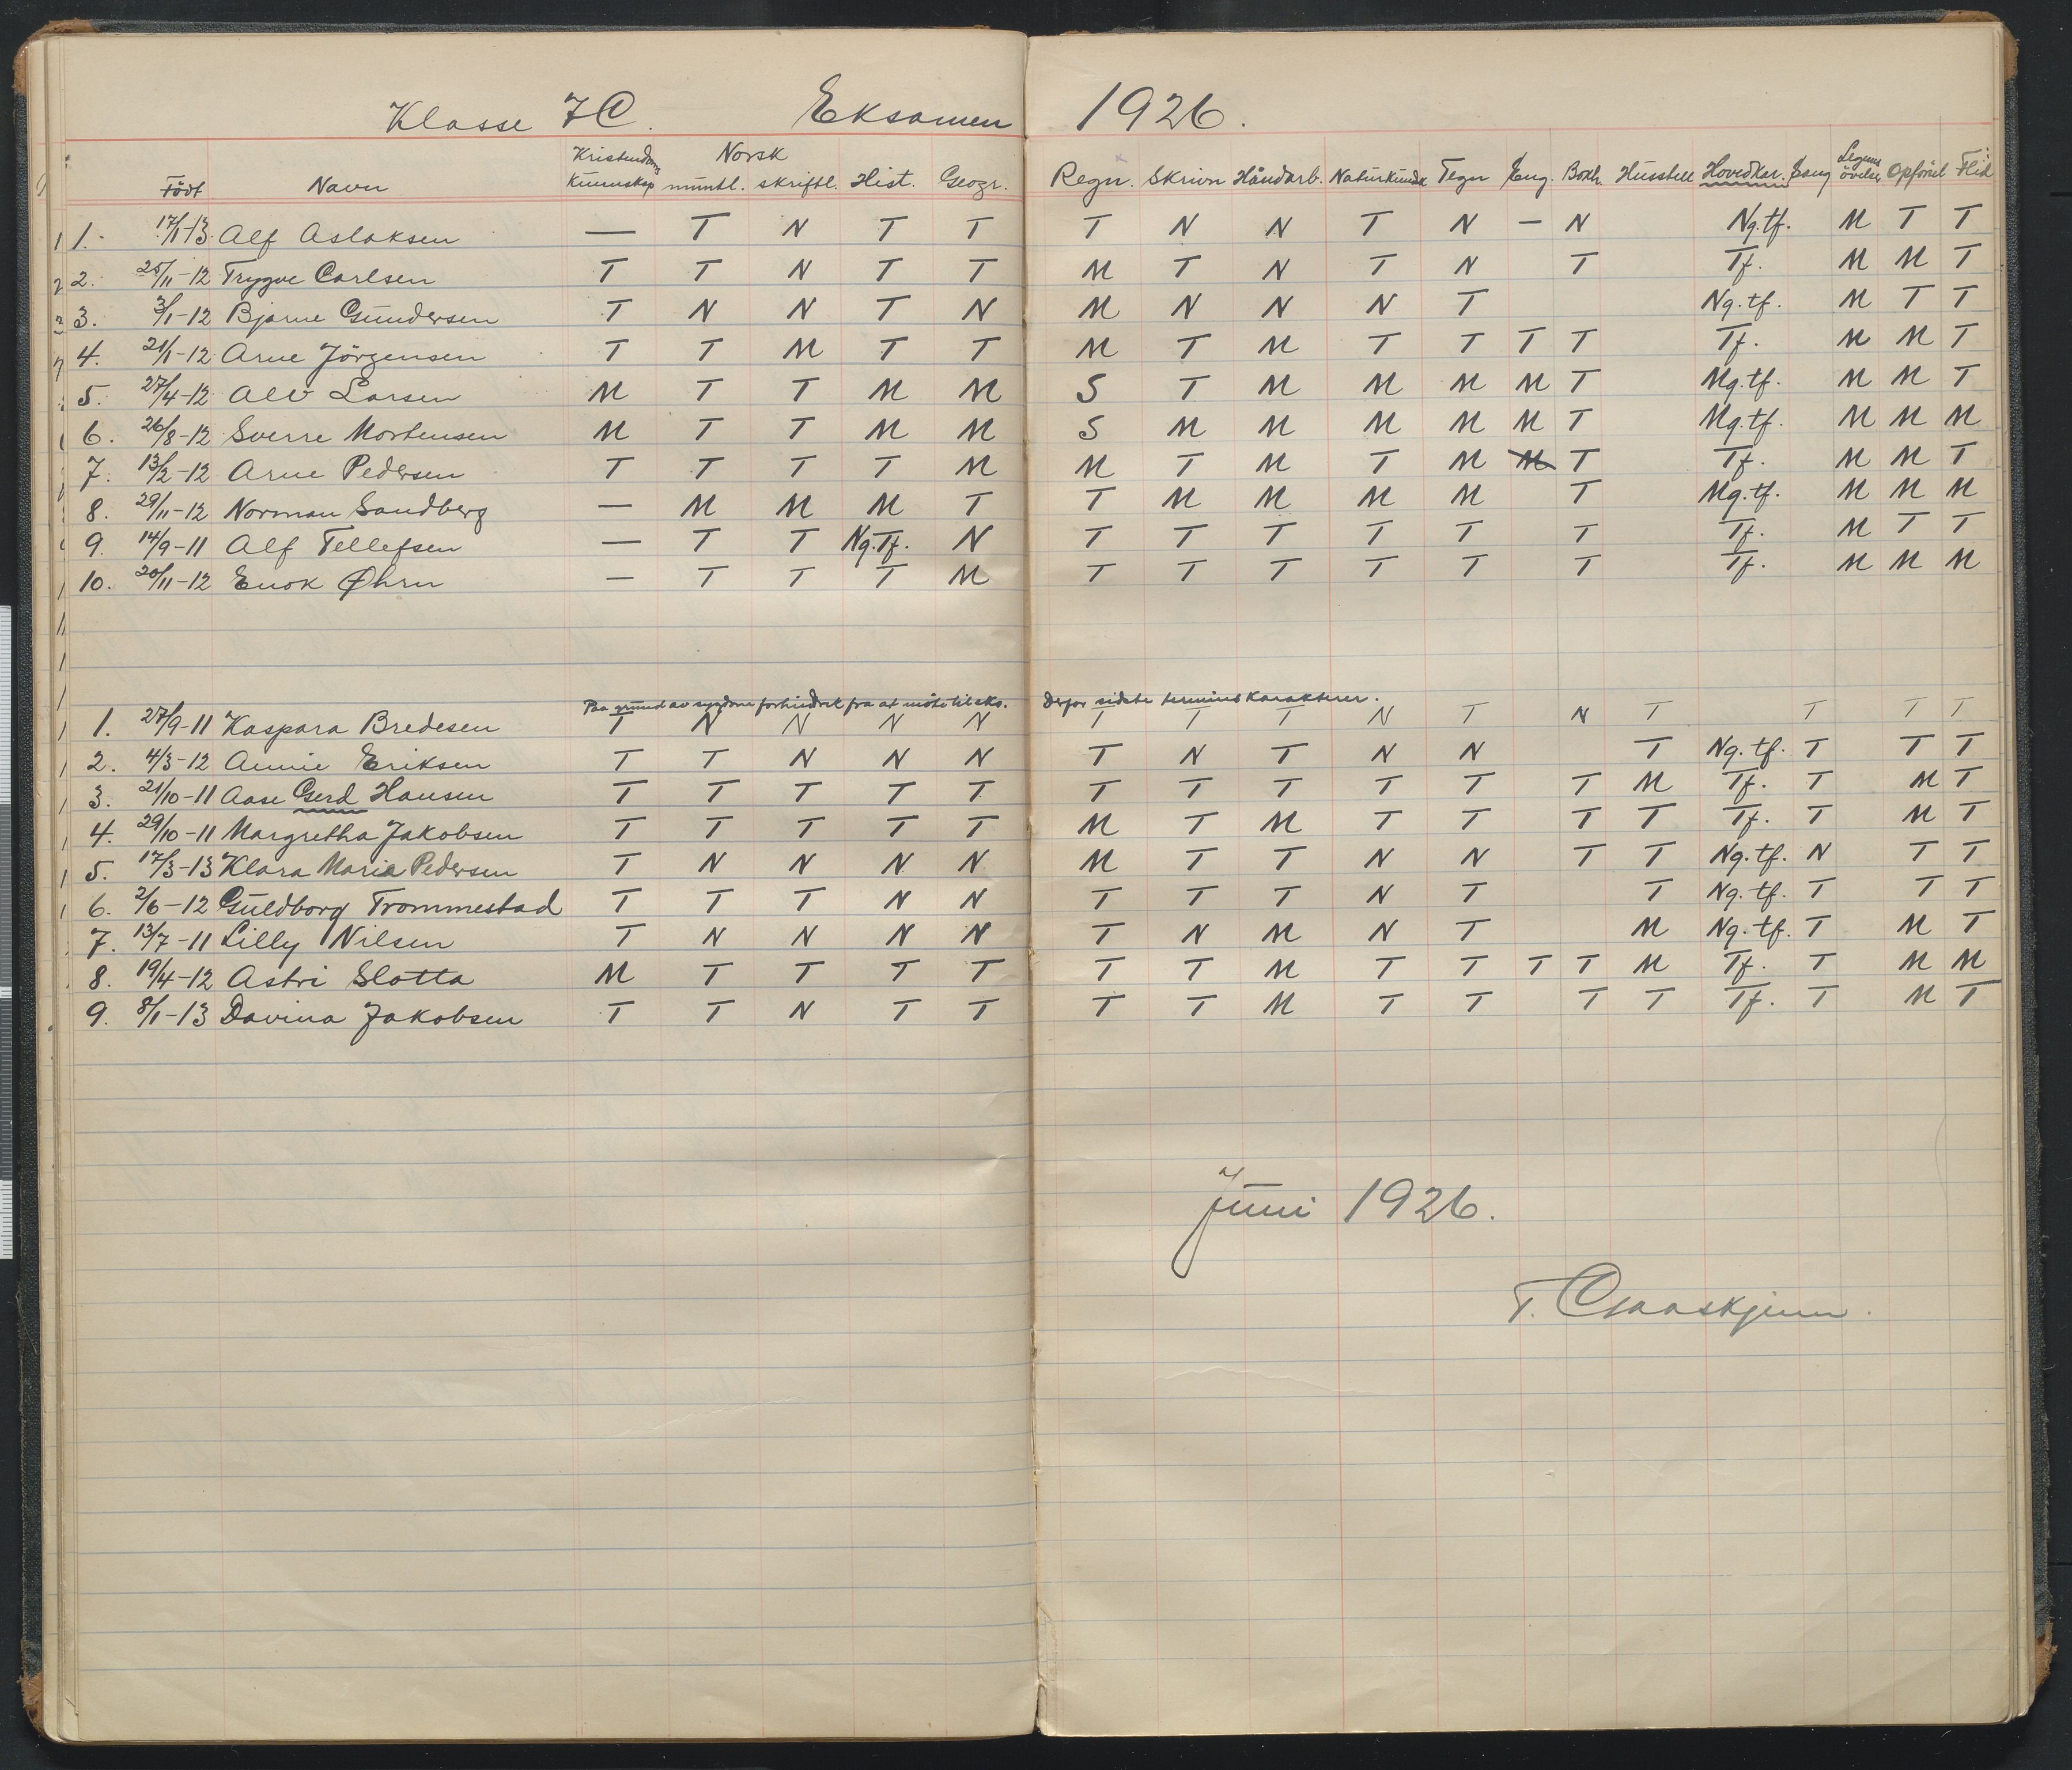 Klasse 7C. Eksamen 1926.
Født Navn Kristendoms kunnskap Norsk muntl. skriftl. Hist. Geogr. Regn. Skrivn Håndarb. Naturkunnsk Tegn Eng. Bokh. Husstell Hovedkar. Sang Legems övelser Opførsel Flid
1. 17/1-13 Alf Aslaksen — T N T T T N N T N — N Ng.tf. M T T
2. 25/11-12 Trygve Carlsen T T N T T M T N T N T Tf. M M T
3. 3/1-12 Bjarne Gundersen T N N T N M N N N T Ng.tf. M T T
4. 21/1-12 Arne Jörgensen T T M T T M T M T T T T Tf. M M T
5. 27/4-12 Alv Larsen M T T M M S T M M M M T Mg.tf. M M T
6. 26/8-12 Sverre Mortensen M T T M M S M M M M M T Mg.tf. M M M
7. 13/2-12 Arne Pedersen T T T T M M T M T M M T Tf. M M T
8. 29/11-12 Norman Sandberg — M M M T T M M M M T Mg.tf. M M M
9. 14/9-11 Alf Tellefsen — T T Ng.Tf. N T T T T T T Tf. M T T
10. 20/11-12 Enok Øhrn — T T T M T T T T T T Tf. M M M
Paa grund av sygdom forhindret fra at møte til eks. Derfor sidste termins karakterer.
1. 27/9-11 Kaspara Bredesen T N N N N T T T N T N T T T T
2. 4/3-12 Annie Eriksen T T N N N T N T N N T Ng.tf. T T T
3. 21/10-11 Aase Gerd Hansen T T T T T T T T T T T M Tf. T M T
4. 29/10-11 Margretha Jakobsen T T T T T M T M T T T T Tf. T M T
5. 17/3-13 Klara Marie Pedersen T N N N N M T T N N T T Ng.tf. N T T
6. 2/6-12 Guldborg Trommestad T T T N N T T T N T T Ng.tf. T T T
7. 13/7-11 Lilly Nilsen T N N N N T N M N T M Ng.tf. T M T
8. 19/4-12 Astri Slotta M T T T T T T M T T T T M Tf. T M M
9. 8/1-13 Davina Jakobsen T T N T T T T M T T T T Tf. T M T
Juni 1926.